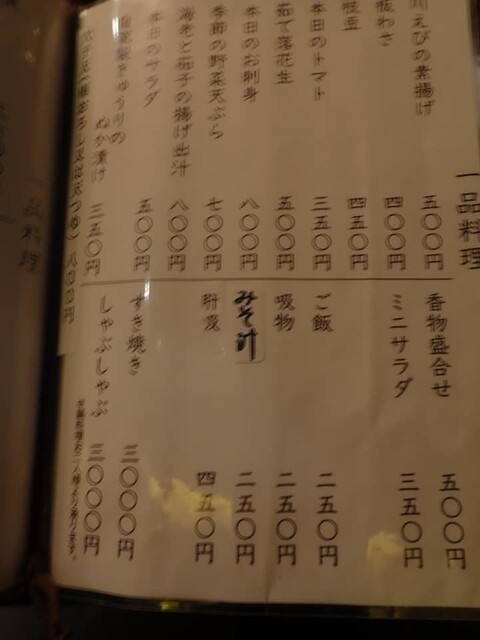 一品料理
川えびの素揚げ 五〇〇円
板わさ 四〇〇円
枝豆 四五〇円
本日のトマト 三五〇円
茹で落花生 五〇〇円
本日のお刺身 八〇〇円
季節の野菜天ぷら 七〇〇円
海老と茄子の揚げ出汁 八〇〇円
本日のサラダ 五〇〇円
自家製きゅうりの
ぬか漬け 三五〇円
八〇〇円
香物盛合せ 五〇〇円
ミニサラダ 三五〇円
ご飯 二五〇円
吸物 二五〇円
みそ汁 二五〇円
肝吸 四五〇円
すき焼き 三〇〇〇円
しゃぶしゃぶ 三〇〇〇円
一品料理